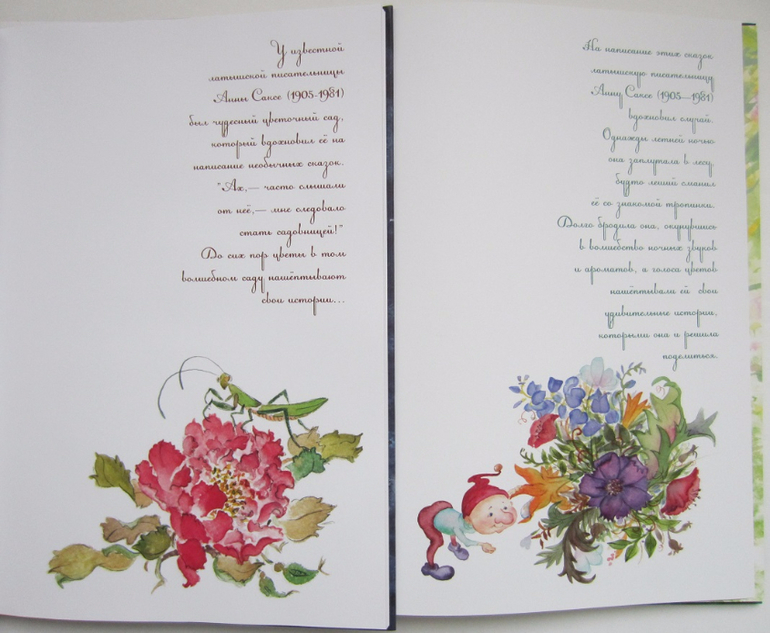 У известной
латышской писательницы
Анны Саксе (1905-1981)
был чудесный цветочный сад,
который вдохновил её на
написание необычных сказок.
"Ах,— часто слышали
от неё,— мне следовало
стать садовницей!"
До сих пор цветы в том
волшебном саду нашёптывают
свои истории...
На написание этих сказок
латышскую писательницу
Анну Саксе (1905—1981)
вдохновил случай.
Однажды летней ночью
она заплутала в лесу,
будто леший сманил
её со знакомой тропинки.
Долго бродила она, окунувшись
в волшебство ночных звуков
и ароматов, а голоса цветов
нашёптывали ей свои
удивительные истории,
которыми она и решила
поделиться.